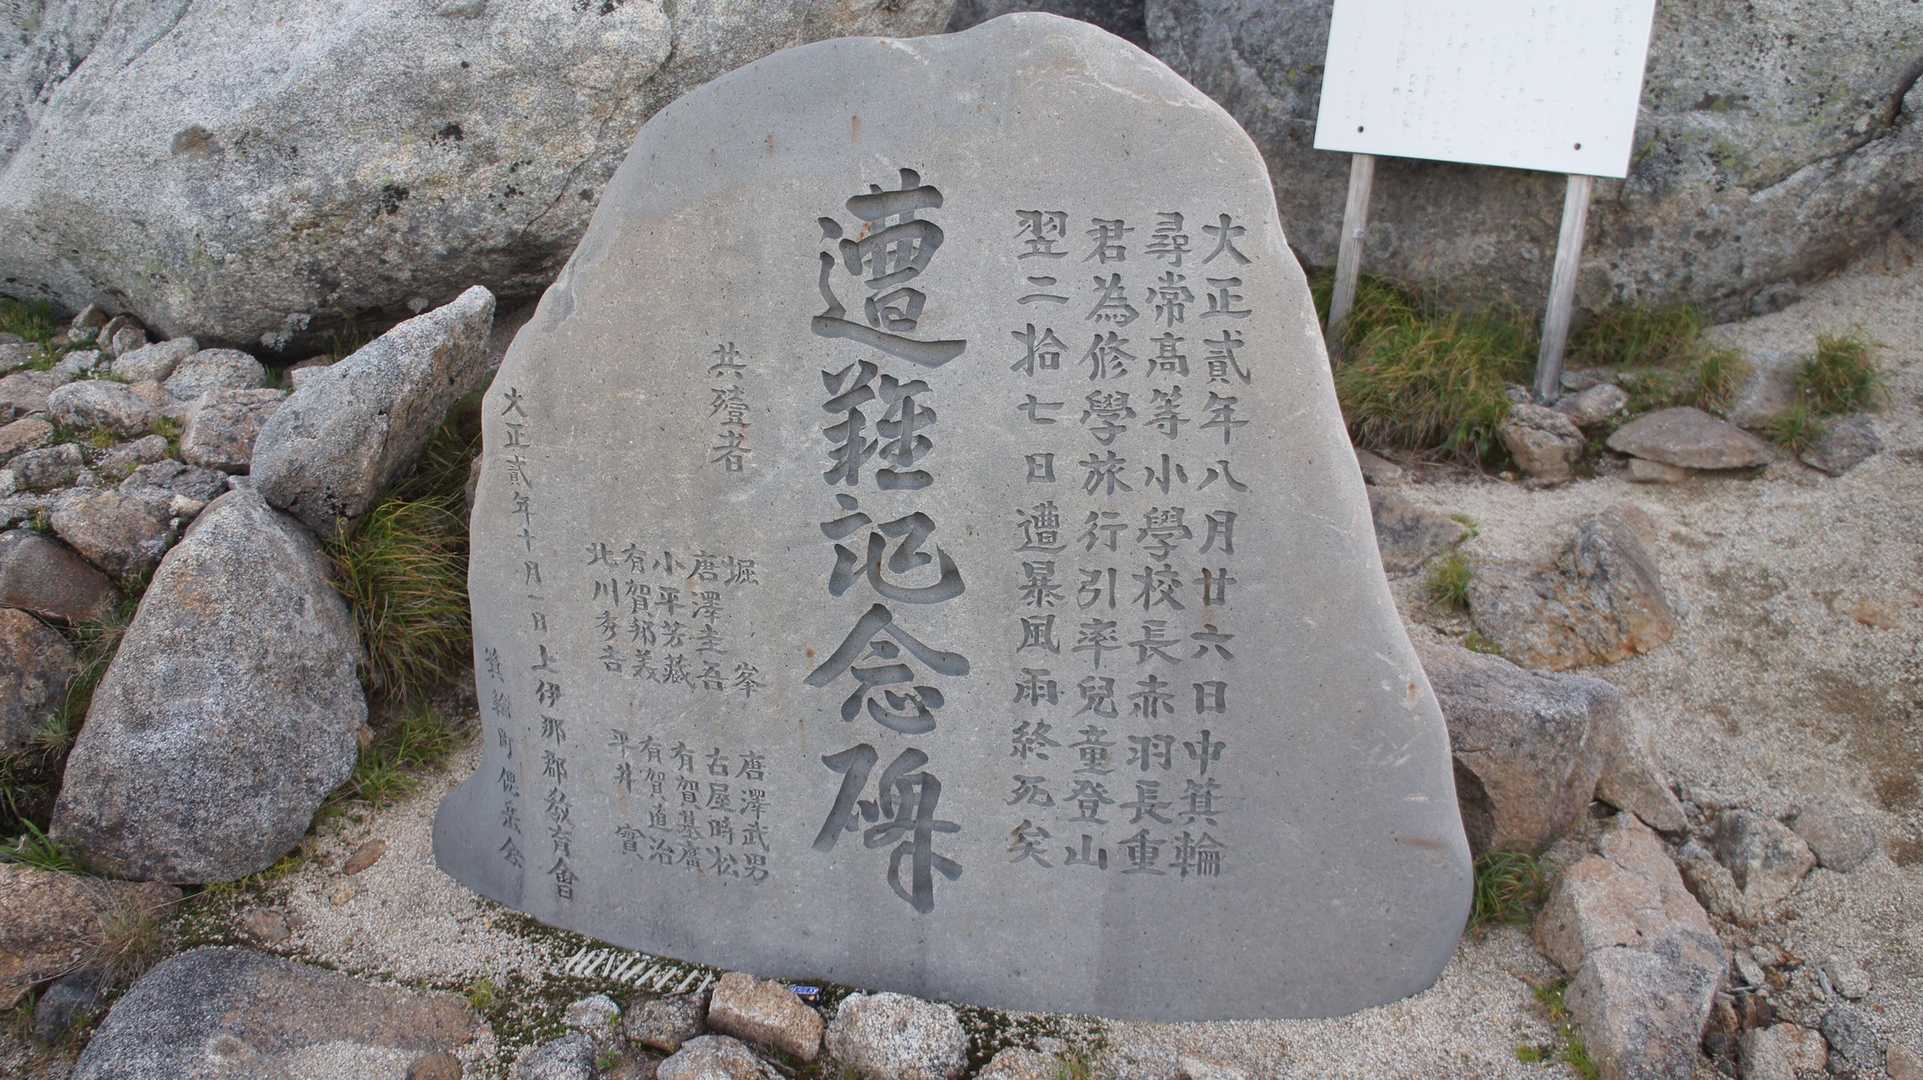 大正貳年八月廿六日中箕輪
尋常高等小學校長赤羽長重
君為修學旅行引率兒童登山
翌二拾七日遭暴風雨終死矣
遭難記念碑
共殪者
堀 峯 唐澤武男
唐澤圭吾 古屋時松
小平芳藏 有賀基廣
有賀邦美 有賀直治
北川秀吉 平井 實
大正貳年十月一日上伊那郡教育會
箕輪町